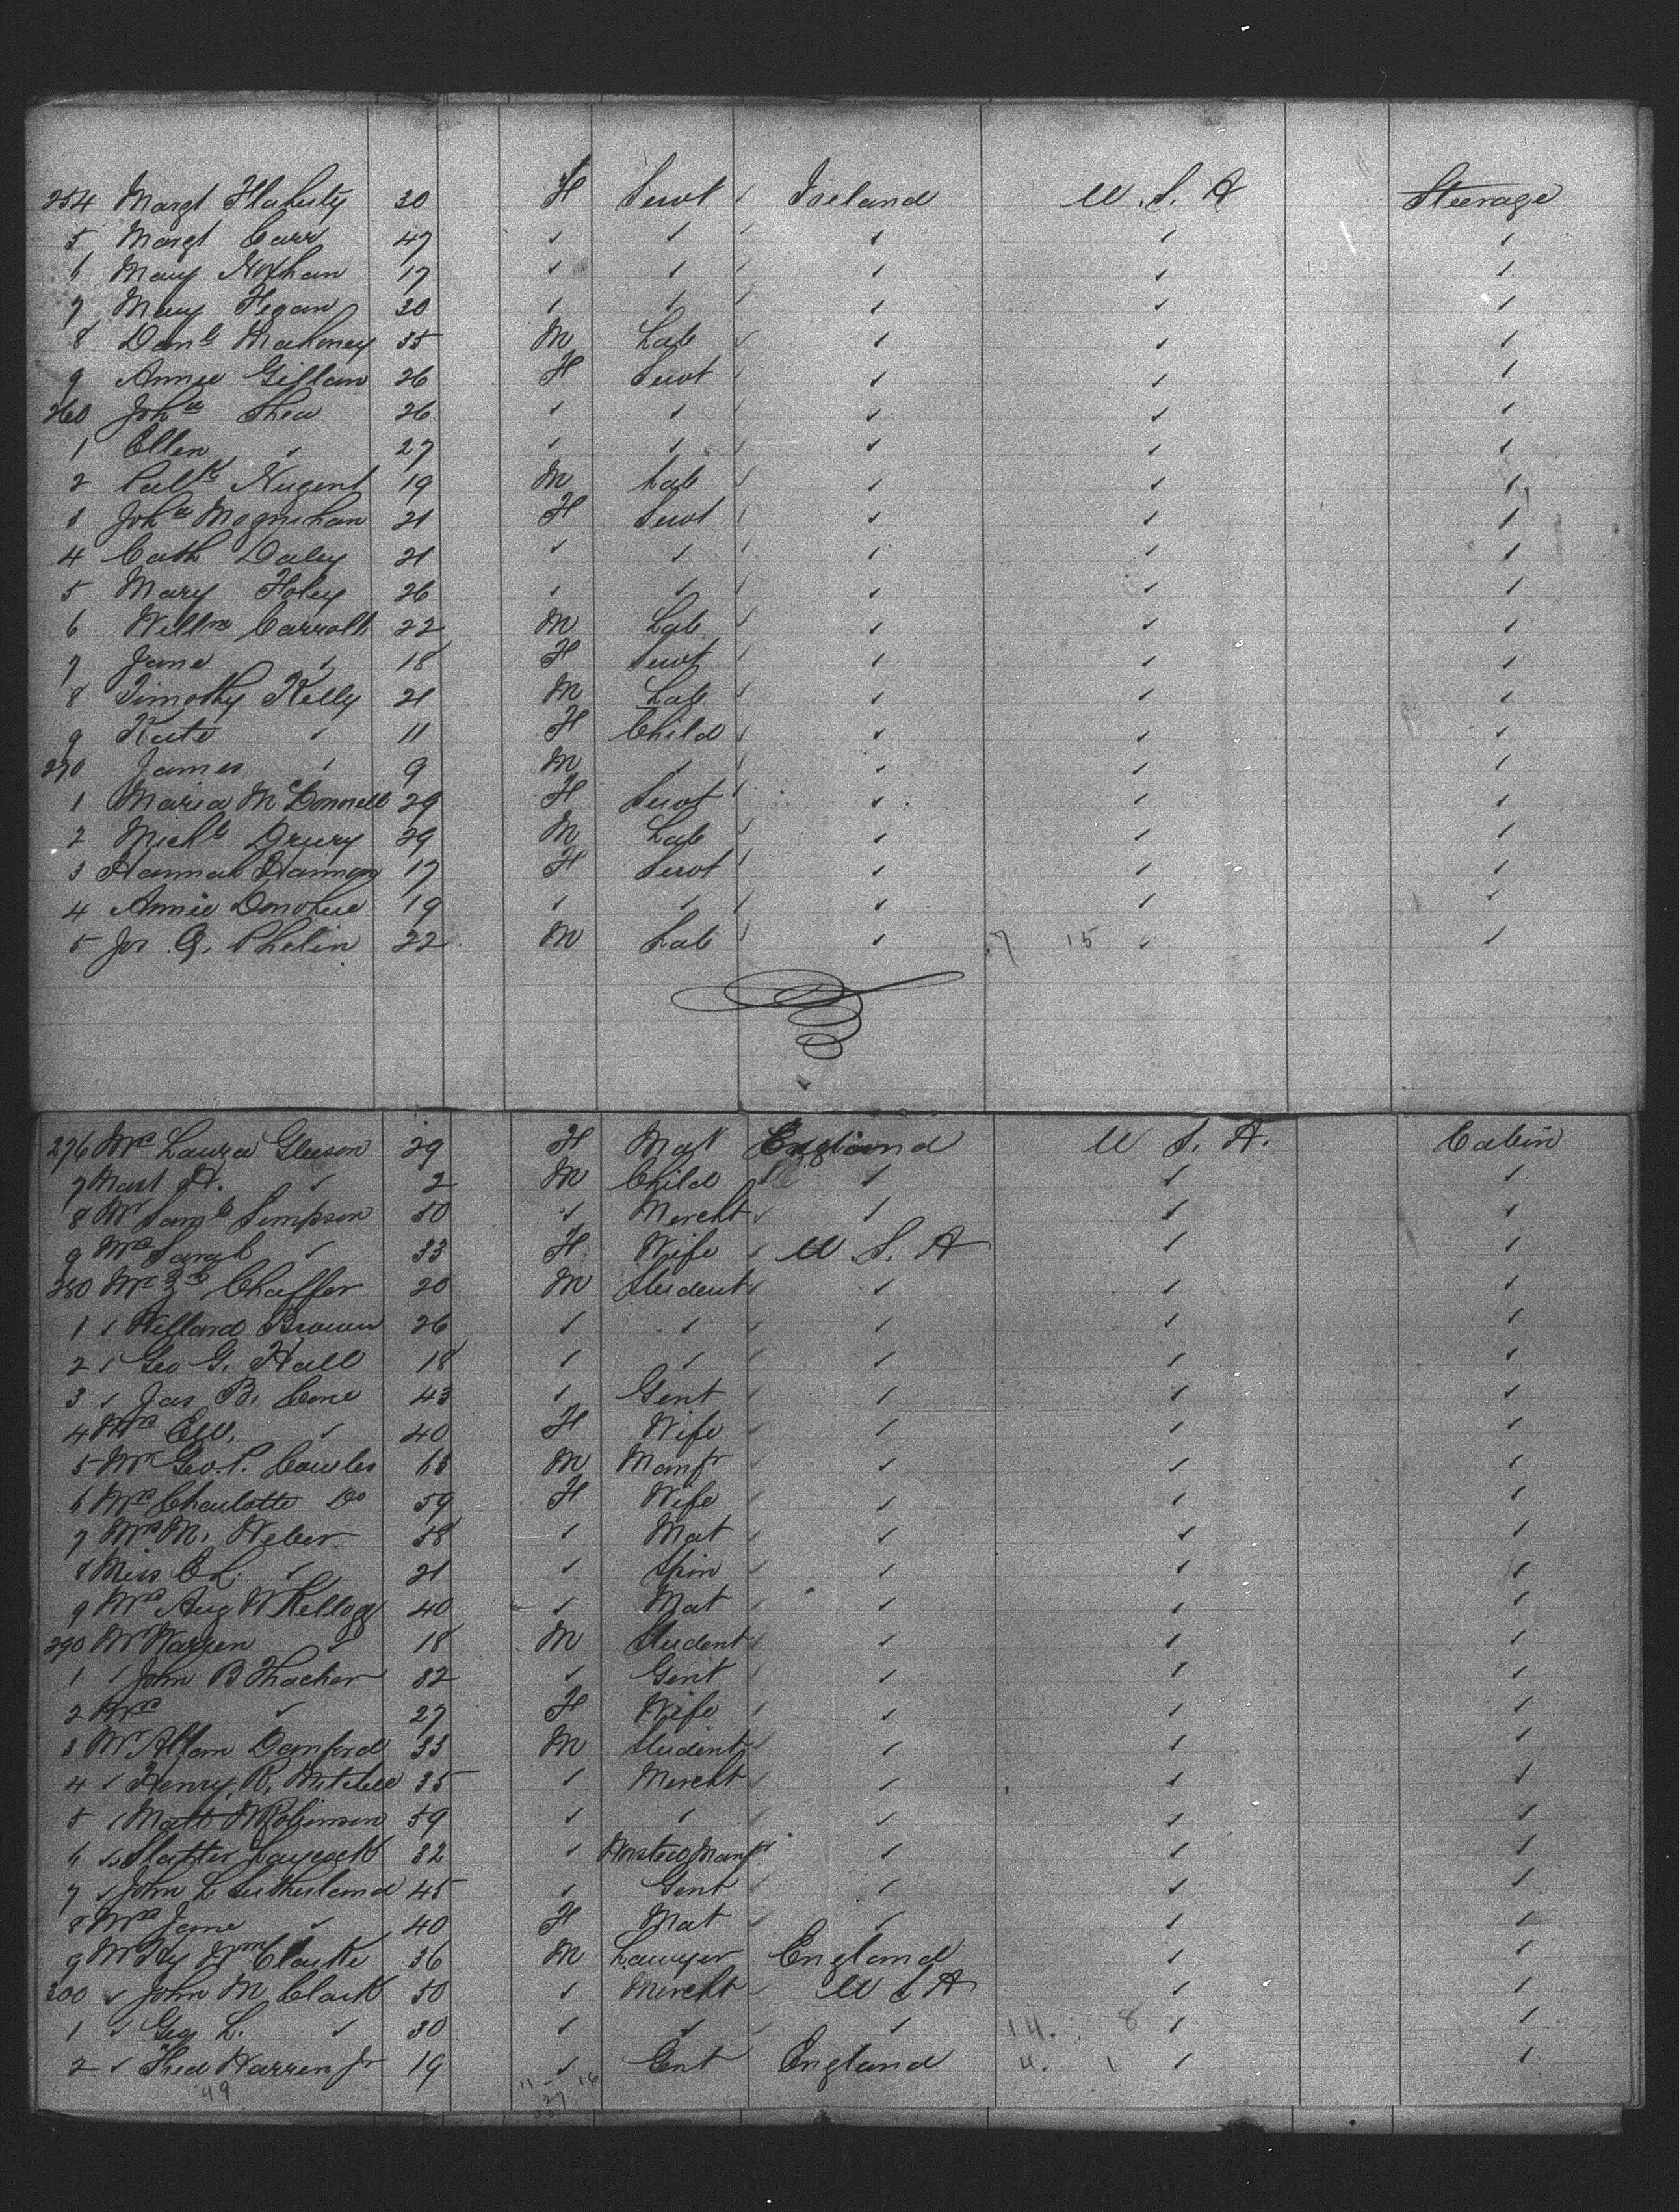 254 Margt Flaherty 30 F Servt Ireland U.S.A Steerage
5 Margt Carr 47 ✓ ✓ ✓ ✓ ✓
6 Mary 17 ✓ ✓ ✓ ✓ ✓
7 Mary Hegan 30 ✓ ✓ ✓ ✓ ✓
8 Danl Mahoney 35 M Lab ✓ ✓ ✓
9 Annie Gillan 26 F Servt ✓ ✓ ✓
260 Joha Shea 26 ✓ ✓ ✓ ✓ ✓
1 Ellen ✓ 27 ✓ ✓ ✓ ✓ ✓
2 Patk Nugent 19 M Lab ✓ ✓ ✓
3 Joha Moynihan 21 F Servt ✓ ✓ ✓
4 Cath Daley 21 ✓ ✓ ✓ ✓ ✓
5 Mary Foley 26 ✓ ✓ ✓ ✓ ✓
6 Willm Carroll 22 M Lab ✓ ✓ ✓
7 Jane ✓ 18 F Servt ✓ ✓ ✓
8 Timothy Kelly 21 M Lab ✓ ✓ ✓
9 Kate ✓ 11 F Child ✓ ✓ ✓
270 James ✓ 9 M ✓ ✓ ✓ ✓
1 Maria McDonnell 29 F Servt ✓ ✓ ✓
2 Michl Drury 29 M Lab ✓ ✓ ✓
3 Hannah Hannon 17 F Servt ✓ ✓ ✓
4 Annie Donohue 19 ✓ ✓ ✓ ✓ ✓
5 Jos. Phelin 22 M Lab ✓ 7 15 ✓ ✓
276 Mrs Laura Gleeson 29 F Mat England U.S.A. Cabin
7 Mast H. ✓ 2 M Child ✓ ✓ ✓
8 Mr Saml Simpson 50 ✓ Mercht ✓ ✓ ✓
9 Mrs Sarah ✓ 33 F Wife U.S.A ✓ ✓
280 Mr Chaffer 20 M Student ✓ ✓ ✓
1 ✓ Willard Brown 26 ✓ ✓ ✓ ✓ ✓
2 ✓ Geo G. Hall 18 ✓ ✓ ✓ ✓ ✓
3 ✓ Jas B. Cone 43 ✓ Gent ✓ ✓ ✓
4 Mrs ✓ 40 F Wife ✓ ✓ ✓
5 Mr Geo. P. Cowles 63 M Manfr ✓ ✓ ✓
6 Mrs Charlotte Do 59 F Wife ✓ ✓ ✓
7 Mrs M. Weber 58 ✓ Mat ✓ ✓ ✓
8 Miss C L. ✓ 21 ✓ Spin ✓ ✓ ✓
9 Mrs Aug W Kellogg 40 ✓ Mat ✓ ✓ ✓
290 Mr Warren ✓ 18 M Student ✓ ✓ ✓
1 ✓ John B Thacher 32 ✓ Gent ✓ ✓ ✓
2 Mrs ✓ 27 F Wife ✓ ✓ ✓
3 Mr Danford 33 M Student ✓ ✓ ✓
4 ✓ Henry R. Mitchell 35 ✓ Mercht ✓ ✓ ✓
5 ✓ Matt W Robinson 59 ✓ ✓ ✓ ✓ ✓
6 ✓ Slatter Laycock 32 ✓ Worsted Manfr ✓ ✓ ✓
7 ✓ John L Sutherland 45 ✓ Gent ✓ ✓ ✓
8 Mrs Jane ✓ 40 F Mat ✓ ✓ ✓
9 Mr Hy Wm Clarke 36 M Lawyer England ✓ ✓
300 ✓ John M Clark 50 ✓ Mercht U S A ✓ ✓
1 ✓ Geo L. ✓ 30 ✓ ✓ ✓ 14. 8 ✓ ✓
2 ✓ Fred Warren Jr 19 ✓ Gent England 4. 1 ✓ ✓
49 11 16
27